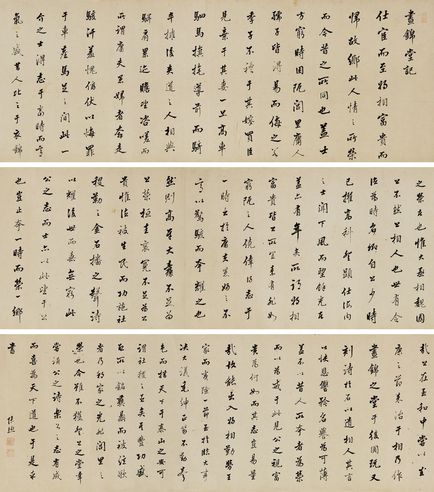 晝錦堂記
仕宦而至將相富貴而
歸故鄉此人情之所榮
而今昔之所同也蓋士
方窮時困阨閭里庸人
孺子皆得易而侮之若
季子不禮于其嫂買臣
見棄于其妻一旦高車
駟馬旗旄導前而騎
卒擁後夾道之人相與
駢肩累迹瞻望咨嗟而
所謂庸夫愚婦者奔走
駭汗羞愧俯伏以悔罪
于車塵馬足之間此一
介之士得志于當時而意
氣之盛昔人比之于衣錦
之榮者也惟大丞相魏國
公不然公相人也世有令
德為時名卿自公少時
已擢高科登顯仕海內
之士聞下風而望餘光者
蓋亦有年矣所謂將相
富貴皆公所宜素有非如
窮阨之人僥倖得志于
一時出于庸夫愚婦之不
意以驚駭而夸耀之也
然則高牙大纛不足為
公榮桓圭袞冕不足為公
貴惟德被生民而功施社
稷勒之金石播之聲詩
以耀後世而垂無窮此
公之志而士亦以此望于公
也豈止夸一時而榮一鄉
哉公在至和中嘗以武
康之節來治于相乃作
晝錦之堂于後圃既又
刻詩于石以遺相人其言
以快恩讐矜名譽為可薄
蓋不以昔人所夸者為榮
而以為戒于此見公之視富
貴為何如而其志豈易量
哉故能出入將相勤勞王
家而夷險一節至於臨大事
決大議垂紳正笏不動聲
色而措天下于泰山之安可
謂社稷之臣矣其豐功盛
烈所以銘彝鼎而被弦歌
者乃邦家之光非閭里之
榮也余雖不獲登公之堂幸
嘗竊誦公之詩樂公之志有成
而喜為天下道也于是乎
書
張照